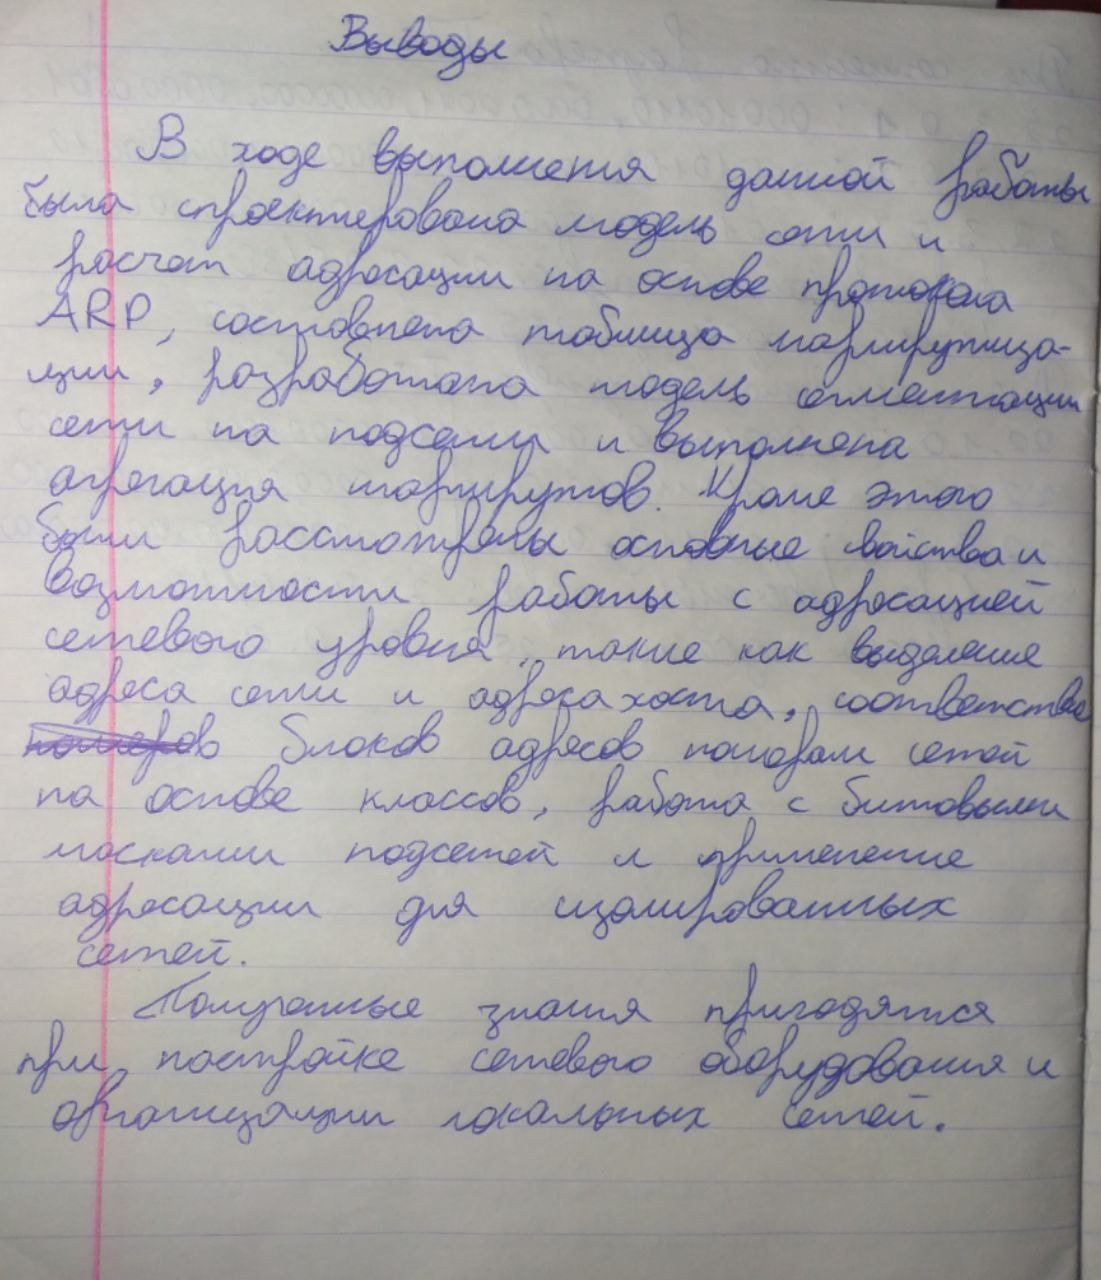 Выводы
В ходе выполнения данной работы
была спроектирована модель сети и
расчет адресации на основе протокола
ARP, составлена таблица маршрутиза-
ции, разработана модель сегментации
сети на подсети и выполнена
агрегация маршрутов. Кроме этого
были рассмотрены основные свойства и
возможности работы с адресацией
сетевого уровня, такие как выделение
адреса сети и адреса хоста, соответствие
блоков адресов номерам сетей
на основе классов, работа с битовыми
масками подсетей и применение
адресации для изолированных
сетей.
Полученные знания пригодятся
при настройке сетевого оборудования и
организации локальных сетей.